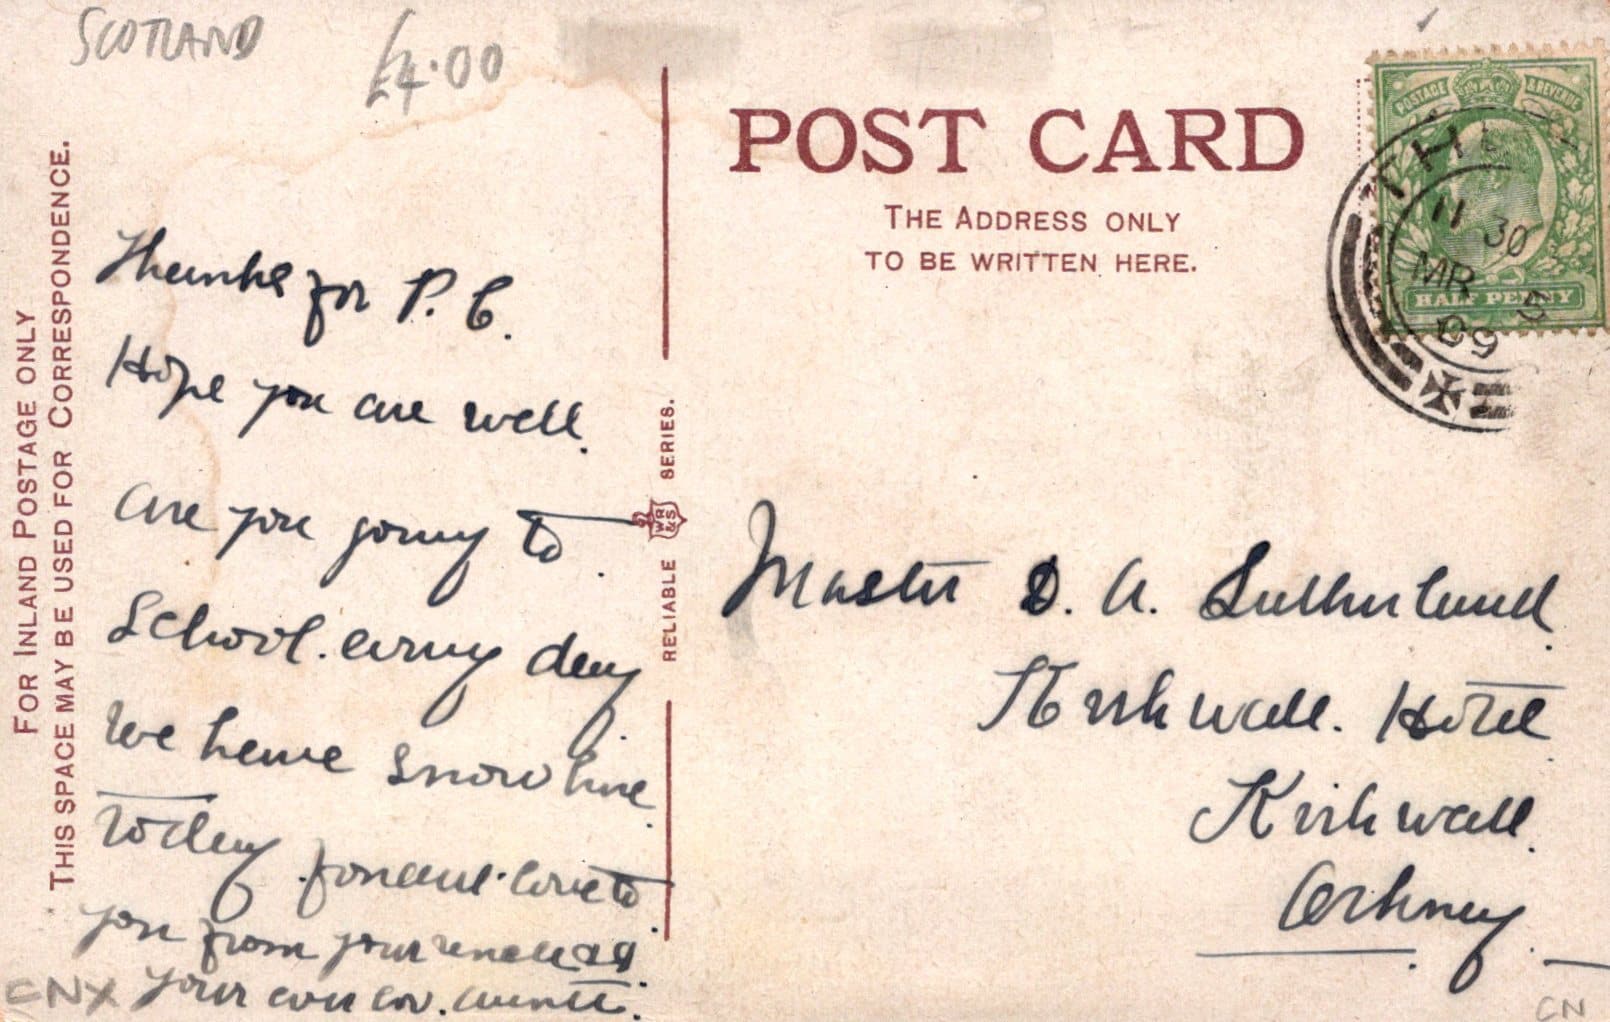 SCOTLAND
£4.00
FOR INLAND POSTAGE ONLY
THIS SPACE MAY BE USED FOR CORRESPONDENCE.
POST CARD
THE ADDRESS ONLY
TO BE WRITTEN HERE.
POSTAGE & REVENUE
HALF PENNY
TH
11 30
MR 5
09
RELIABLE WR&S SERIES.
Thanks for P. C.
Hope you are well.
are you going to
School. every day
we have snow here
today fondest love to
you from your uncle as
your ever lov. auntie.
Master D. A. Sutherland
Kirkwall. Hotel
Kirkwall
Orkney
CNX
CN